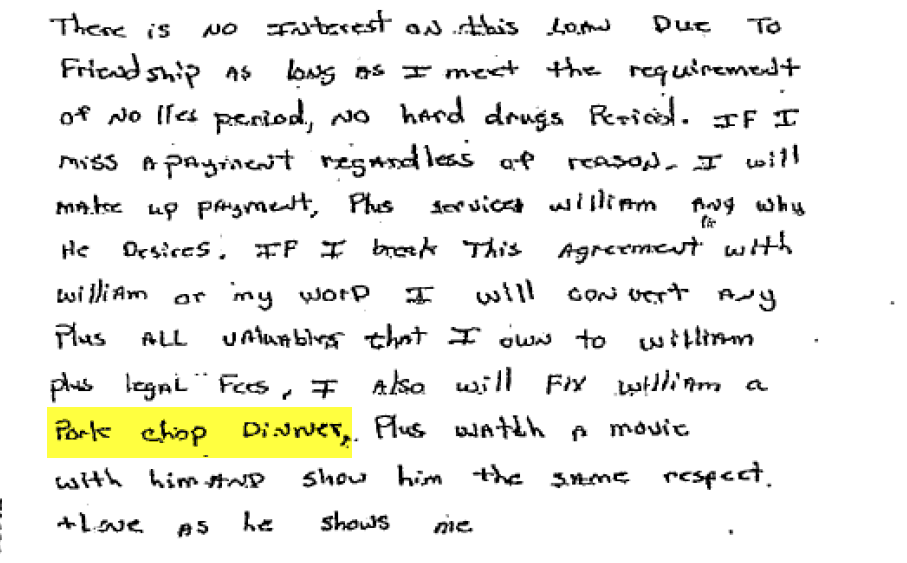 There is NO Interest on this Loan Due To
Friendship As long as I meet the requirement
of No lies period, No hard drugs Period. IF I
miss A payment regardless of reason. I will
make up payment, Plus services william Any why
He Desires. IF I break This Agreement with
william or my WORD I will convert Any
Plus ALL valuables that I own to william
plus legal Fees, I Also will Fix william a
Pork chop Dinner, Plus watch A movie
with him AND show him the same respect.
+Love As he shows me